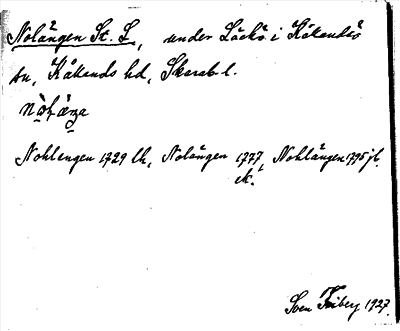 Nolängen St. L, under Läckö i Kållandsö
sn, Kållands hd, Skarab. l.
Nohlengen 1729 lk, Nolängen 1777, Nohlängen 1795 jb.
ek.
Sven Friberg 1927.